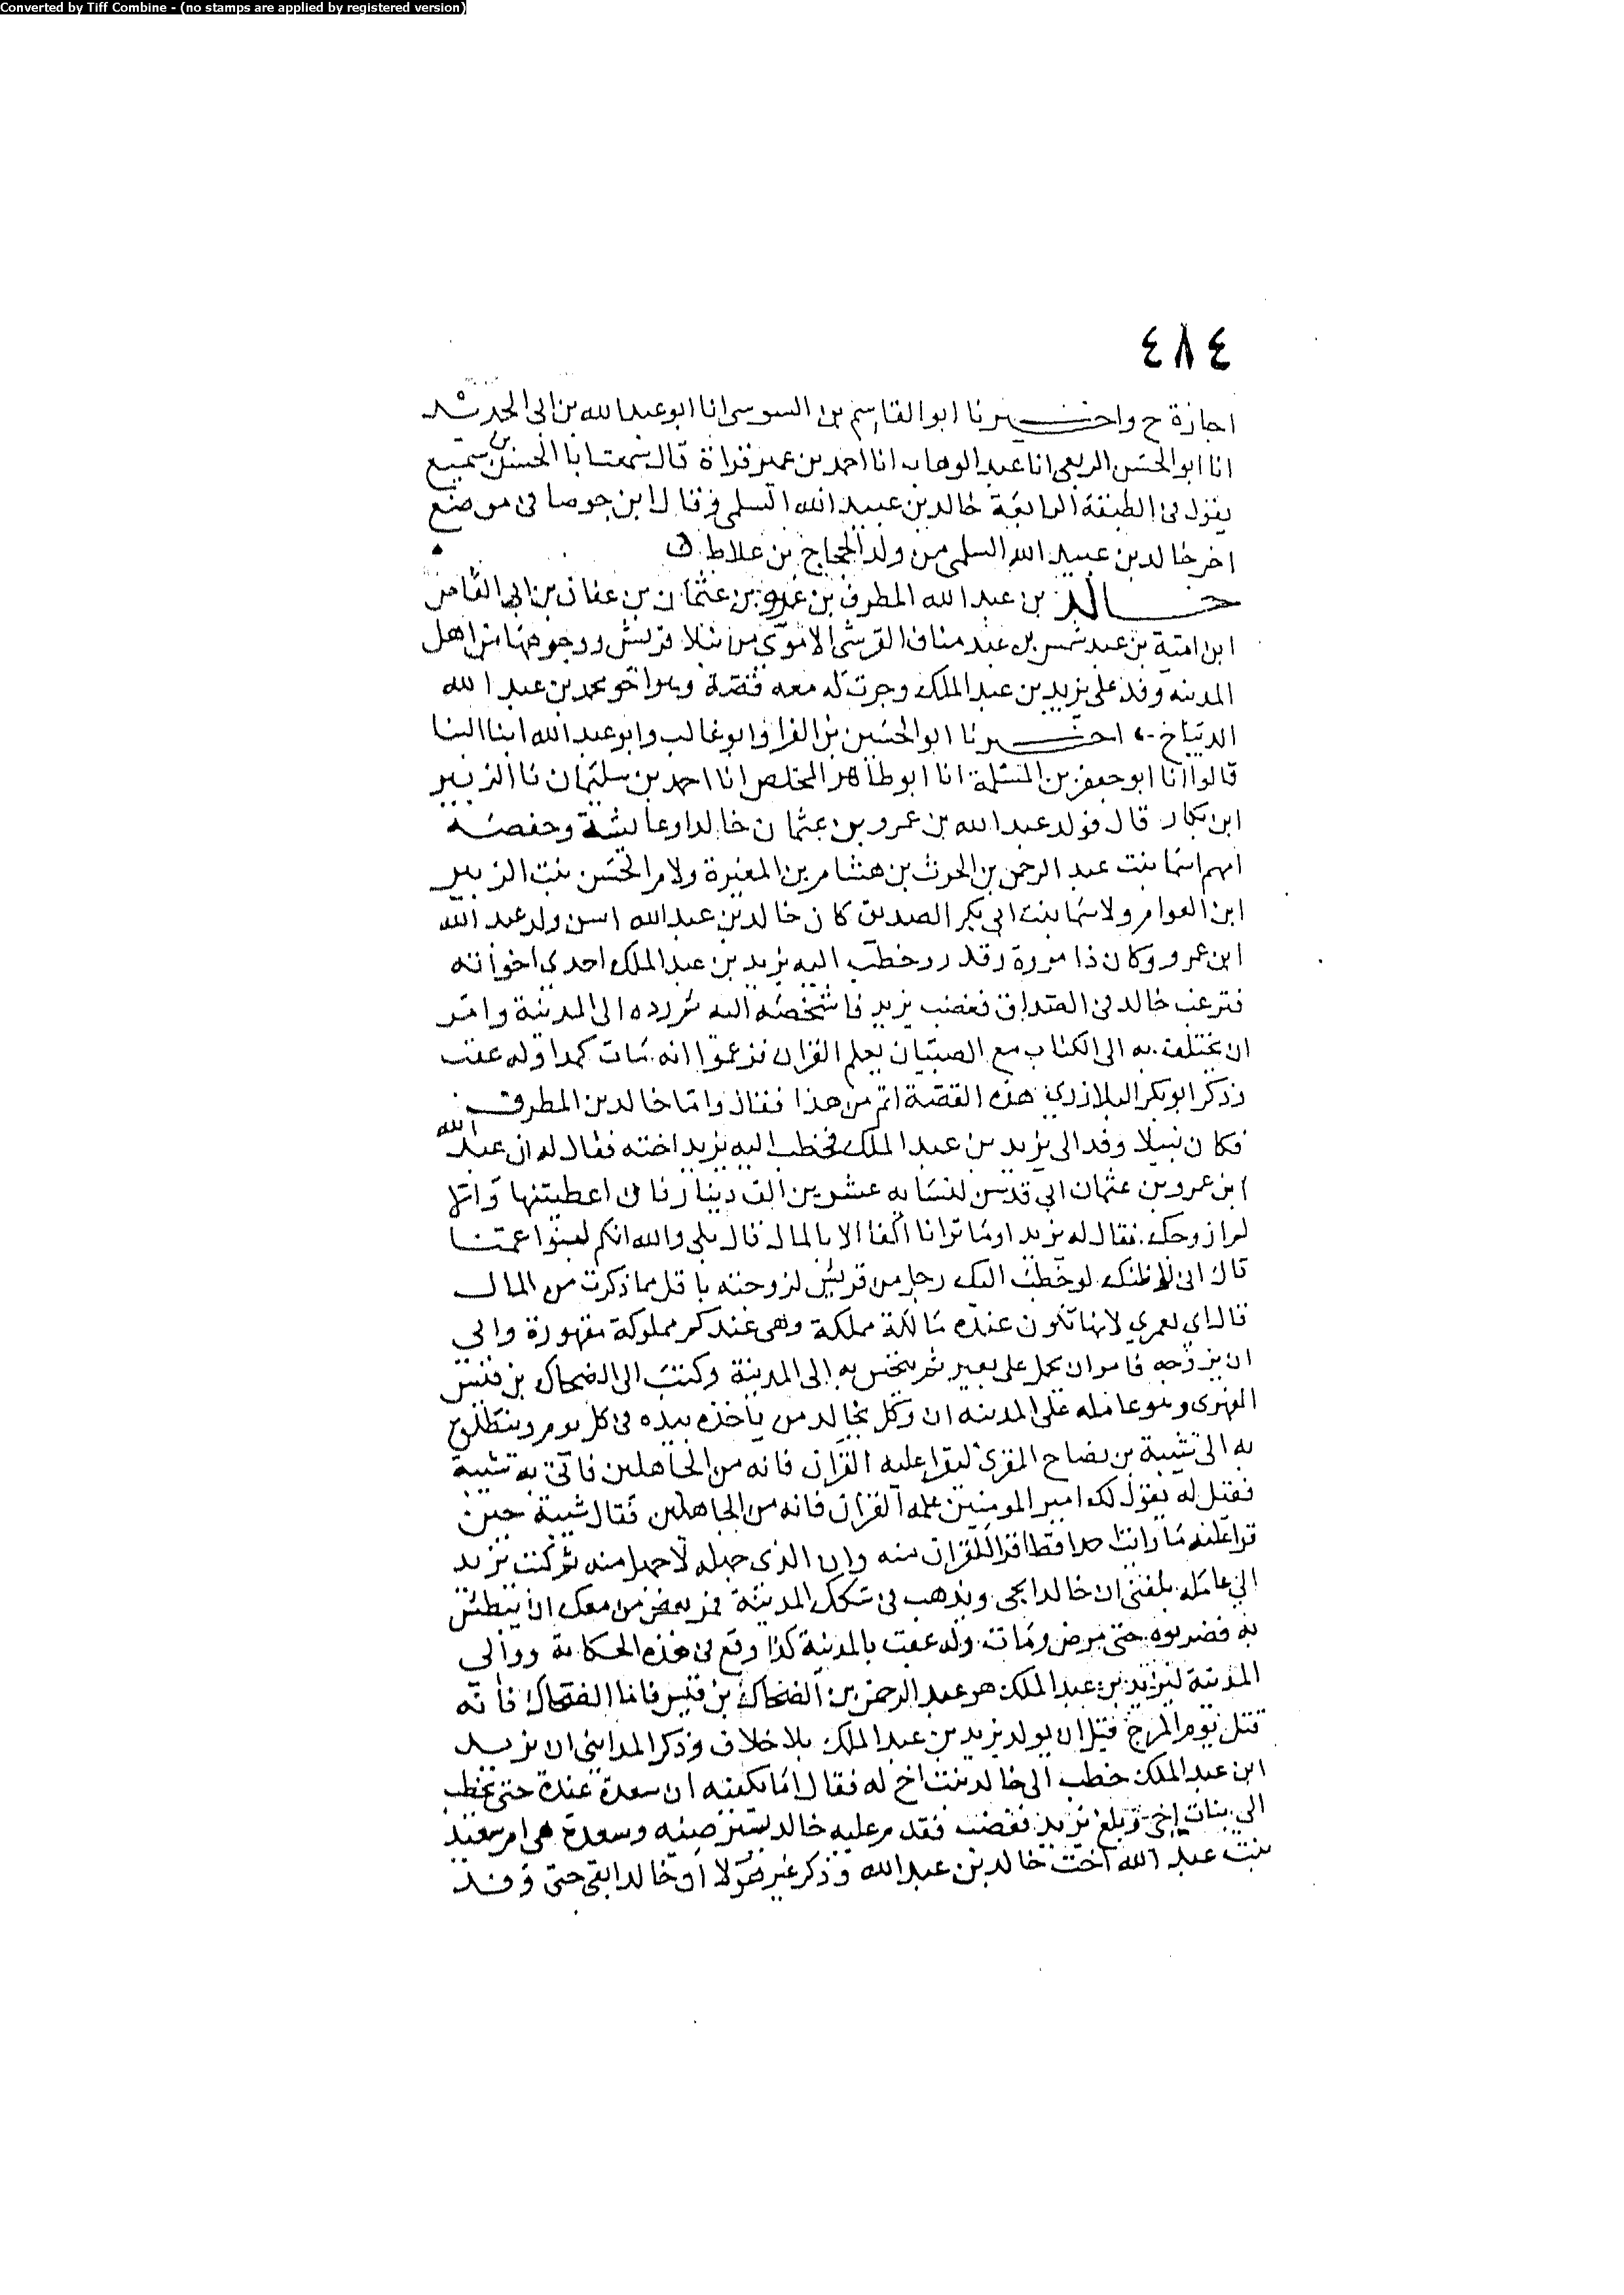 Converted by Tiff Combine - (no stamps are applied by registered version)
٤٨٤
اجازة ح واخبرنا ابو القاسم بن السوسى انا ابو عبد الله بن ابى الحديد
انا ابو الحسن الربعى انا عبد الوهاب انا احمد بن عمير قراة قال سمعت ابا الحسن بن سميع
يقول فى الطبقة الرابعة خالد بن عبيد الله السلمى وقال ابن جوصا فى موضع
اخر خالد بن عبيد الله السلمى من ولد الحجاج بن علاط
خالد بن عبد الله المطرف بن عمرو بن عثمان بن عفان بن ابى العاص
ابن امية بن عبد شمس بن عبد مناف القرشى الاموى من نبلا قريش ووجوهها من اهل
المدينه وفد على يزيد بن عبد الملك وجرت له معه قصة وهو اخو محمد بن عبد الله
الديباج اخبرنا ابو الحسين بن الفرا وابو غالب وابو عبد الله ابنا البنا
قالوا انا ابو جعفر بن المسلمة انا ابو طاهر المخلص انا احمد بن سليمان نا الزبير
ابن بكار قال فولد عبد الله بن عمرو بن عثمان خالدا وعايشة وحفصة
امهم اسما بنت عبد الرحمن بن الحرث بن هشام بن المغيرة ولام الحسن بنت الزبير
ابن العوام ولاسما بنت ابى بكر الصديق كان خالد بن عبد الله اسن ولد عبد الله
ابن عمرو وكان ذا مروة وقدر وخطب اليه يزيد بن عبد الملك احدى اخواته
فترغب خالد فى الصداق فغضب يزيد فاشخصه اليه ثم رده الى المدينة وامر
ان يختلف به الى الكتاب مع الصبيان يعلم القران فزعموا انه مات كمدا وله عقب
وذكر ابو بكر البلاذرى هذه القصة اتم من هذا فقال واما خالد بن المطرف
فكان نبيلا وفد الى يزيد بن عبد الملك فخطب اليه يزيد اخته فقال له ان عبد الله
ابن عمرو بن عثمان ابى قد سن لنسايه عشرين الف دينار فان اعطيتنيها والا
لم ازوجك فقال له يزيد اوما ترانا اكفا الا بالمال قال بلى والله انكم لبنوا عمنا
قال انى لاظنك لو خطب اليك رجل من قريش لزوجته باقل مما ذكرت من المال
قال اى لعمرى لانها تكون عنده مالكة مملكة وهى عندكم مملوكة مقهورة وابى
ان يزوجه فامر ان يحمل على بعير ثم ينخس به الى المدينة وكتب الى الضحاك بن قيس
الفهرى وهو عامله على المدينه ان وكل بخالد من ياخذه بيده فى كل يوم وينطلق
به الى شيبة بن نصاح المقرئ ليقرا عليه القران فانه من الجاهلين فاتى به شيبة
فقيل له يقول لك امير المومنين علمه القران فانه من الجاهلين فقال شيبة حين
قرا عليه ما رايت احدا قط اقرا للقران منه وان الذى جهله لاجهل منه ثم كتب يزيد
الى عامله بلغنى ان خالدا يجى ويذهب فى سكك المدينة فمر بعض من معك ان يبطش
به فضربوه حتى مرض ومات وله عقب بالمدينة كذا وقع فى هذه الحكاية ووالى
المدينة ليزيد بن عبد الملك هو عبد الرحمن بن الضحاك بن قيس فاما الضحاك فانه
قتل يوم المرج قبل ان يولد يزيد بن عبد الملك بلا خلاف وذكر المداينى ان يزيد
ابن عبد الملك خطب الى خالد بنت اخ له فقال اما يكفيه ان سعدة عنده حتى يخطب
الى بنات اخى وبلغ يزيد فغضب فقدم عليه خالد يسترضيه وسعدة هى ام سعيد
بنت عبد الله اخت خالد بن عبد الله وذكر غير هولا ان خالدا بقى حتى وفد